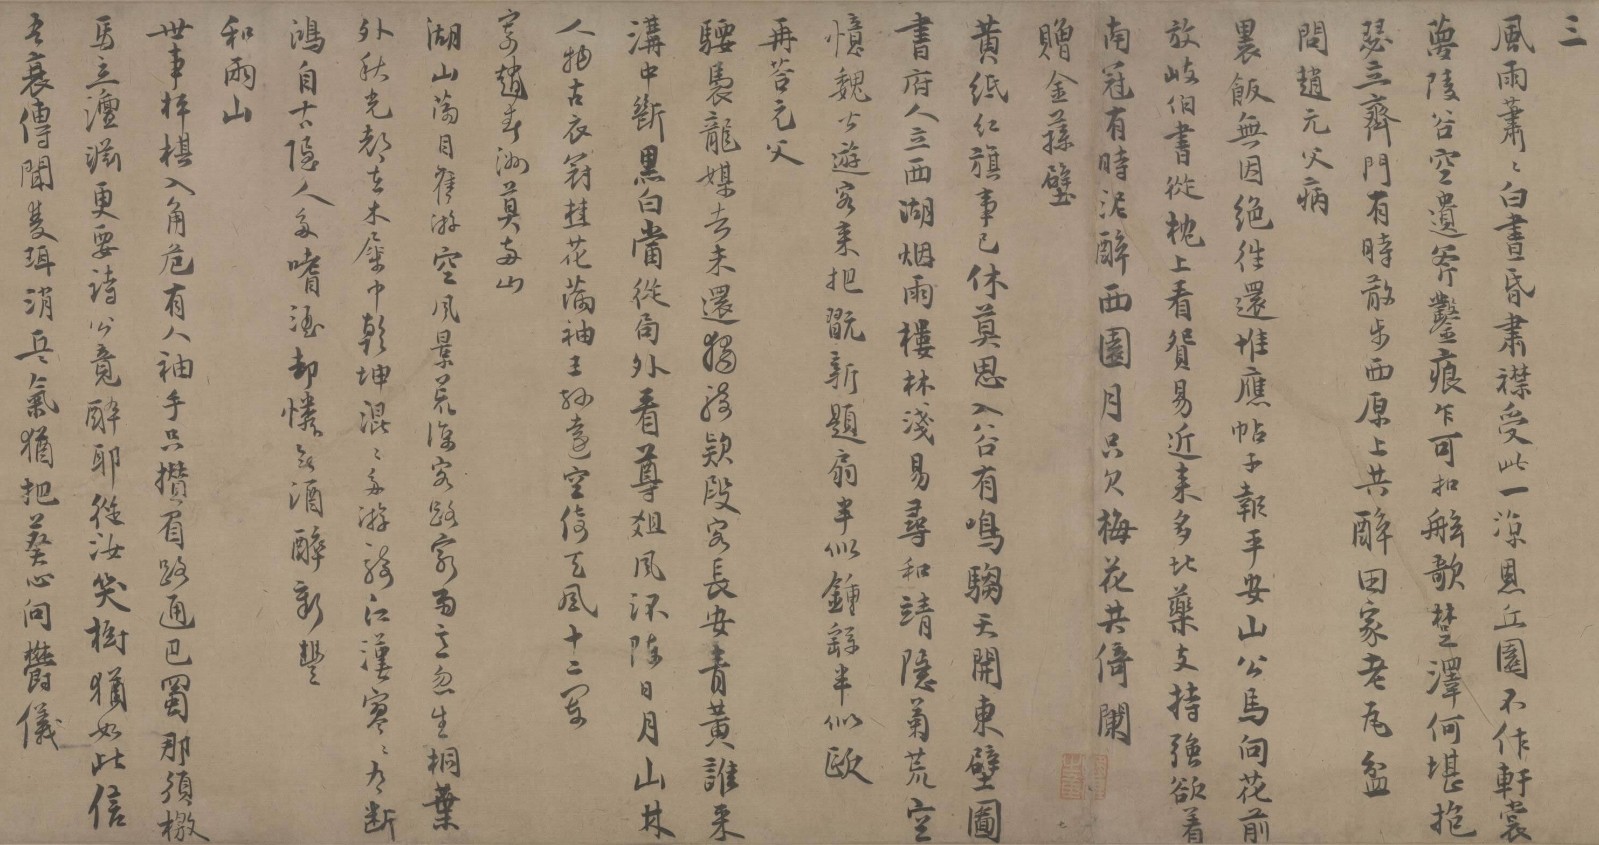 三
風雨蕭〻白晝昏肅襟受此一涼恩丘園不作軒裳
夢陵谷空遺斧鑿痕乍可扣觫歌楚澤何堪抱
瑟立齊門有時散步西原上共醉田家老瓦盆
問趙元父病
裹飯無因絕往還惟應帖子報平安山公馬向花前
放岐伯書從枕上看貧易近来多比藥支持強欲著
南冠有時泥醉西園月只欠梅花共倚闌
贈金蓀壁
黄紙紅旗事已休莫思入谷有鳴騶天開東壁圖
書府人立西湖烟雨樓林淺易尋和靖隱菊荒空
憶魏公遊客来把翫新題扇半似鍾繇半似歐
再荅元父
騕褭龍媒去未還獨騎欵段客長安青黄誰采
溝中斷黑白當從局外看尊俎風流陪日月山林
人物古衣冠桂花滿袖王孫遠空倚天風十二闌
寄趙春洲莫南山
湖山滿目舊游空風景荒涼客路窮雨意忽生桐葉
外秋光都在木犀中乾坤混〻多游騎江漢寥〻有断
鴻自古隱人多嗜酒却憐無酒醉新豐
和雨山
世事枰棋入角危有人袖手只攢眉路通巴蜀那須檄
馬立澶淵更要詩公竟醉耶從汝笑樹猶如此信
吾衰傳聞隻珥消兵氣猶把葵心向鬱儀